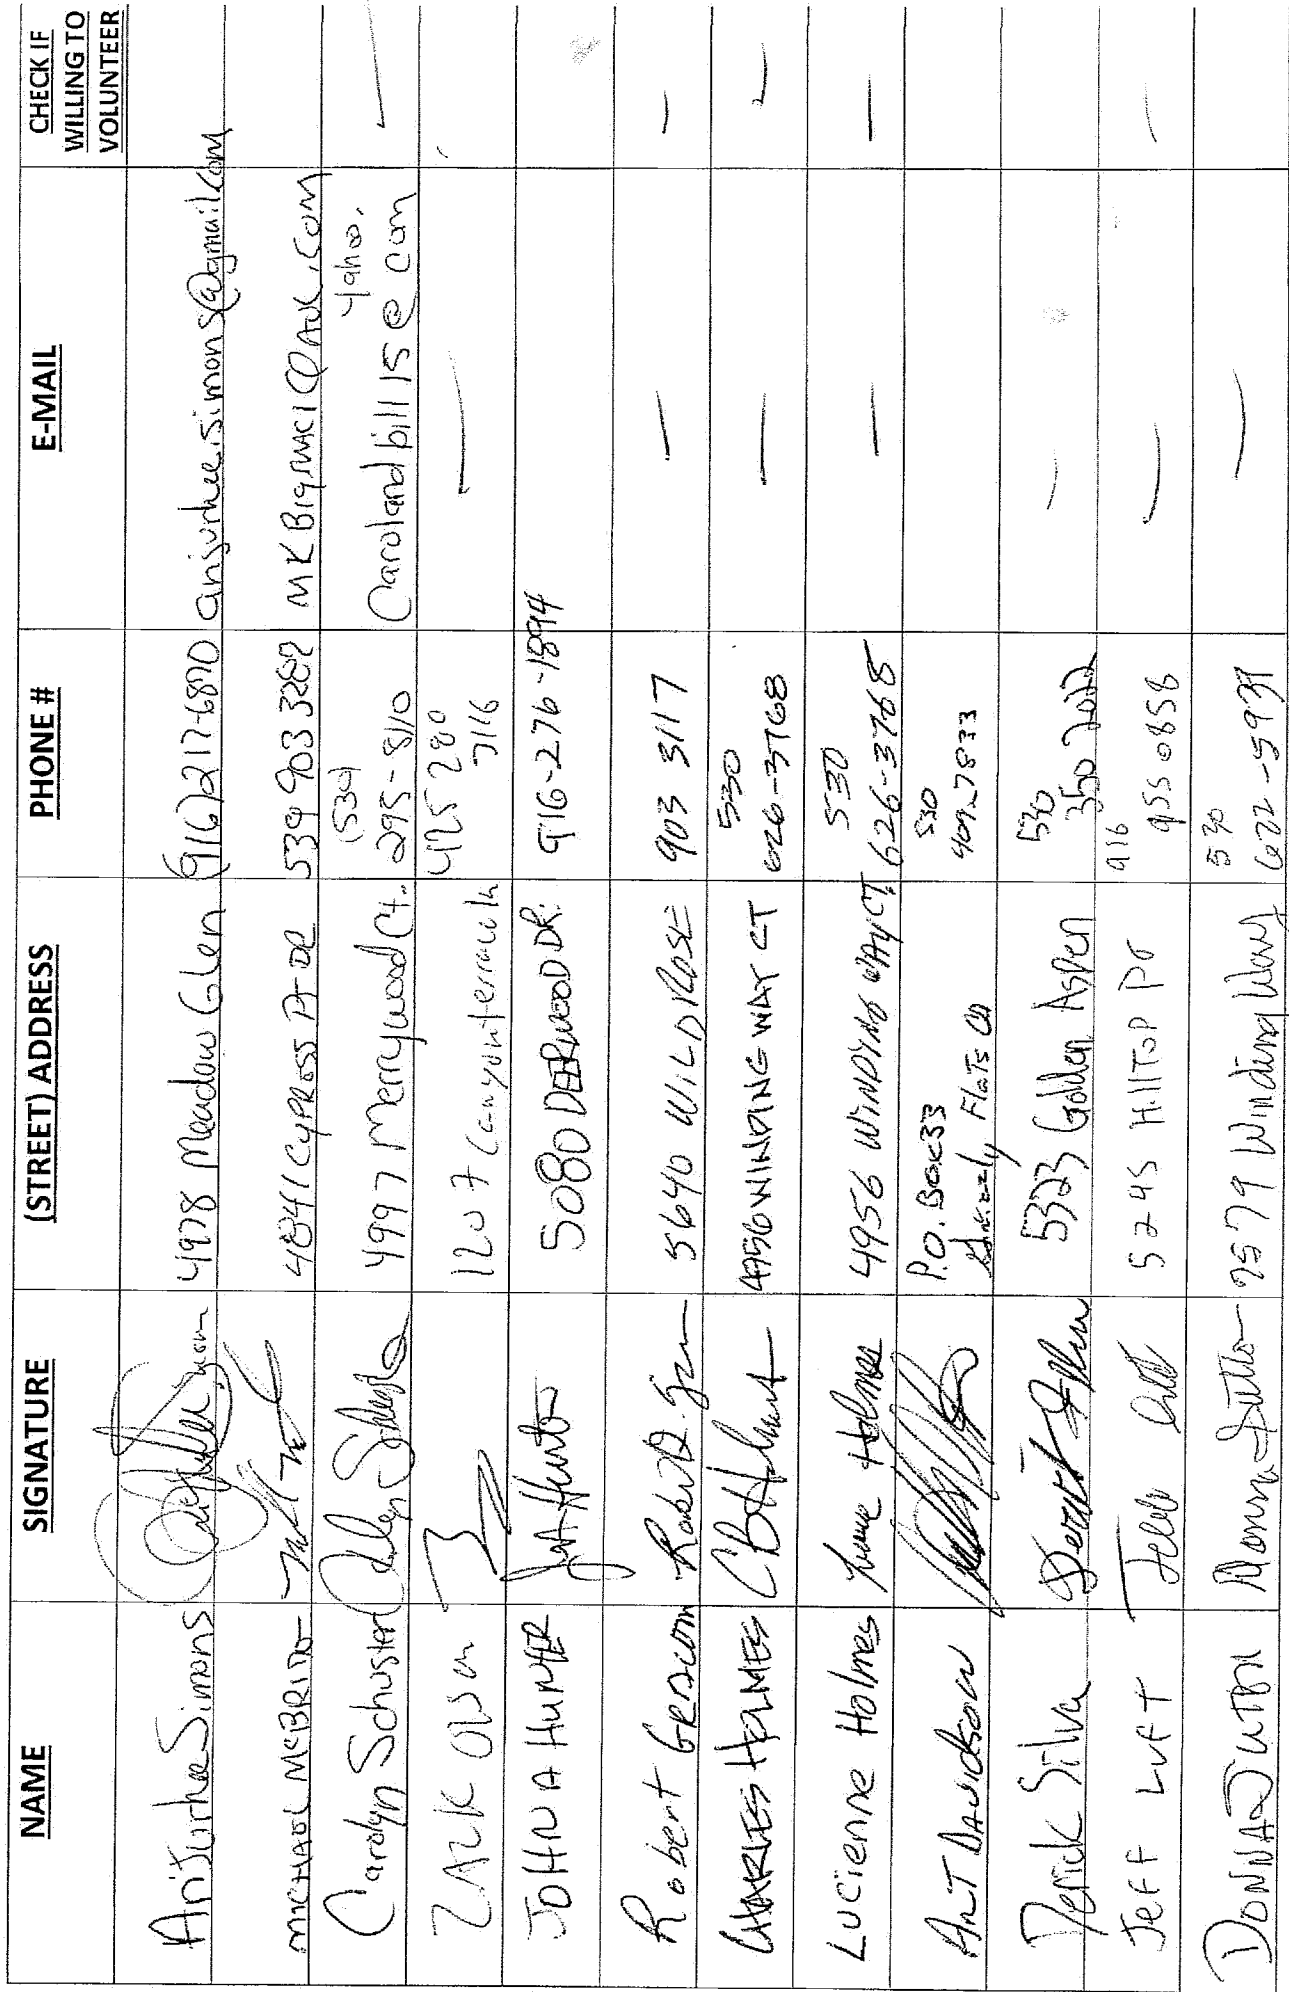 NAME SIGNATURE (STREET) ADDRESS PHONE # E-MAIL CHECK IF WILLING TO VOLUNTEER
AnjurheeSimons 4978 Meadow Glen (916)217-6870 anjurhee.simons@gmail.com
MICHAEL MCBRIDE 4841 CYPRESS PT DR 530 903 3282
Carolyn Schuster 4997 Merrywood Ct. (530) 295-8110 Carolandbill15@yahoo.com
ZACK OLSEN 1207 Canyonterrace ln 425 280 7116 —
JOHN A HUNTER 5080 DEERWOOD DR. 916-276-1894
Robert 5640 WILD ROSE 903 3117 — —
CHARLES HOLMES 4956 WINDING WAY CT 530 626-3768 — —
Lucienne Holmes Holmes 4956 WINDING WAY CT. 530 626-3768 — —
ART DAVIDSON P.O. Box 33 Grizzly Flats CA 530 409-7833
Derick Silva 5323 Golden Aspen 530 350 —
JEFF LUFT 5245 HILLTOP Dr 916 955 0858 — —
DONNA DUTTON Donna Dutton 2579 Winding Way 530 622-5937 —